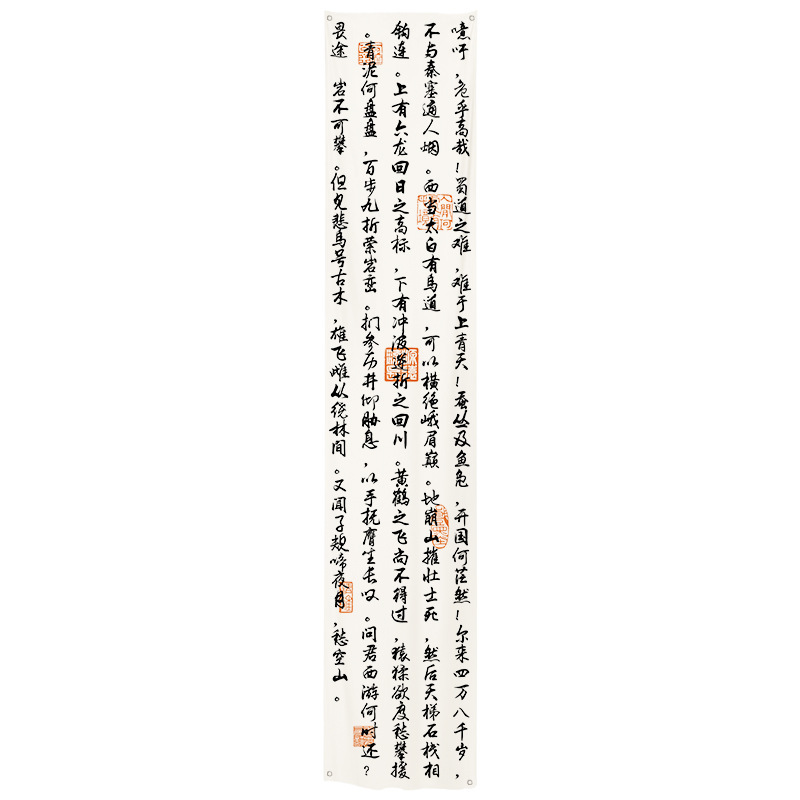 噫吁，危乎高哉！蜀道之难，难于上青天！蚕丛及鱼凫，开国何茫然！尔来四万八千岁，
不与秦塞通人烟。西当太白有鸟道，可以横绝峨眉巅。地崩山摧壮士死，然后天梯石栈相
钩连。上有六龙回日之高标，下有冲波逆折之回川。黄鹤之飞尚不得过，猿猱欲度愁攀援
。青泥何盘盘，百步九折萦岩峦。扪参历井仰胁息，以手抚膺坐长叹。问君西游何时还？
畏途 岩不可攀。但见悲鸟号古木，雄飞雌从绕林间。又闻子规啼夜月，愁空山。